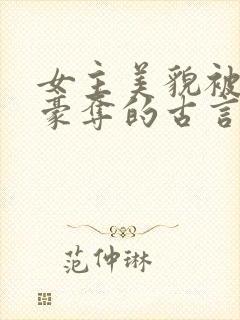 女主美貌被
豪夺的古言
范仲琳